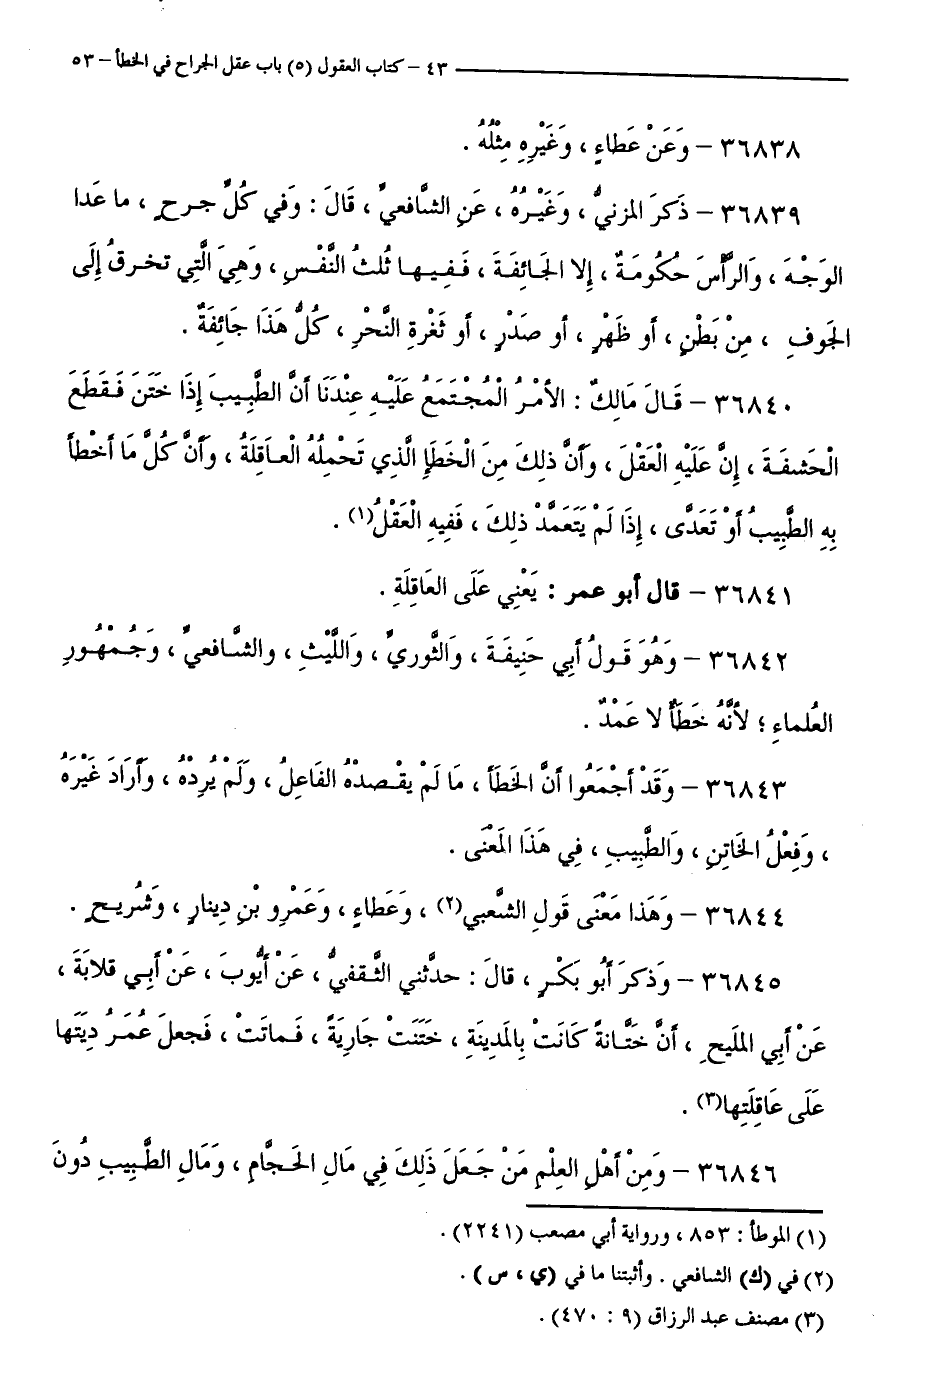 ٤٣ – كتاب العقول (٥) باب عقل الجراح في الخطأ – ٥٣
٣٦٨٣٨ – وَعَنْ عَطاءٍ ، وَغَيْرِهِ مِثْلُهُ .
٣٦٨٣٩ – ذَكَرَ المزنيُّ ، وَغَيْرُهُ ، عَنِ الشَّافعيِّ ، قَالَ : وَفي كُلِّ جرحٍ ، ما عَدا
الوَجْهَ ، وَالرَّأْسَ حُكُومَةٌ ، إِلا الجَائِفَةَ ، فَفِيها ثُلثُ النَّفْسِ ، وَهِيَ الَّتِي تخرقُ إِلَى
الجَوفِ ، مِنْ بَطْنٍ ، أو ظَهْرٍ ، أو صَدْرٍ ، أو ثغْرةِ النَّحْرِ ، كُلُّ هَذَا جَائِفَةٌ .
٣٦٨٤٠ – قَالَ مَالِكٌ : الأمْرُ الْمُجْتَمَعُ عَلَيْهِ عِنْدَنَا أنَّ الطَّبِيبَ إِذَا خَتَنَ فَقَطَعَ
الْحَشفَةَ ، إِنَّ عَلَيْهِ الْعَقْلَ ، وَأنَّ ذلِكَ مِنَ الْخَطَإِ الَّذِي تَحْمِلُهُ الْعاَقِلَةُ ، وَأنَّ كُلَّ مَا أخْطأ
بِهِ الطَّبِيبُ أوْ تَعَدَّى ، إِذَا لَمْ يَتَعَمَّدْ ذلِكَ ، فَفِيهِ الْعَقْلُ(١) .
٣٦٨٤١ – قال أبو عمر : يَعْنِي عَلَى العَاقِلَةِ .
٣٦٨٤٢ – وَهُوَ قَولُ أبِي حَنِيفَةَ ، وَالثَّوريِّ ، وَاللَّيْثِ ، والشَّافعيِّ ، وَجُمْهُورِ
العُلماءِ ؛ لأنَّهُ خَطَأٌ لا عَمْدٌ .
٣٦٨٤٣ – وَقَدْ أجْمَعُوا أنَّ الخَطَأ ، مَا لَمْ يقْصدْهُ الفَاعِلُ ، وَلَمْ يُرِدْهُ ، وَأرَادَ غَيْرَهُ
، وَفِعْلُ الخَاتِنِ ، وَالطَّبِيبِ ، فِي هَذَا المَعْنَى .
٣٦٨٤٤ – وَهَذا مَعْنَى قَولِ الشَّعبي(٢) ، وَعَطاءٍ ، وَعَمْرِو بْنِ دِينارٍ ، وَشُريحٍ .
٣٦٨٤٥ – وَذكرَ أبُو بَكْرٍ ، قالَ : حدَّثني الثَّقفيُّ ، عَنْ أيُّوبَ ، عَنْ أبِي قلابَةَ ،
عَنْ أبِي الملَيحِ ، أنَّ خَتَّانةً كَانَتْ بِالمَدِينَةِ ، خَتَنَتْ جَارِيَةً ، فَماتَتْ ، فَجعلَ عُمَرُ دِيَتَها
عَلَى عَاقِلَتِها(٣) .
٣٦٨٤٦ – وَمِنْ أهْلِ العِلْمِ مَنْ جَعَلَ ذَلِكَ فِي مَالِ الحَجَّامِ ، وَمَالِ الطَّبِيبِ دُونَ
(١) الموطأ : ٨٥٣ ، ورواية أبي مصعب (٢٢٤١) .
(٢) في (ك) الشافعي . وأثبتنا ما في (ي ، س) .
(٣) مصنف عبد الرزاق (٩ : ٤٧٠) .